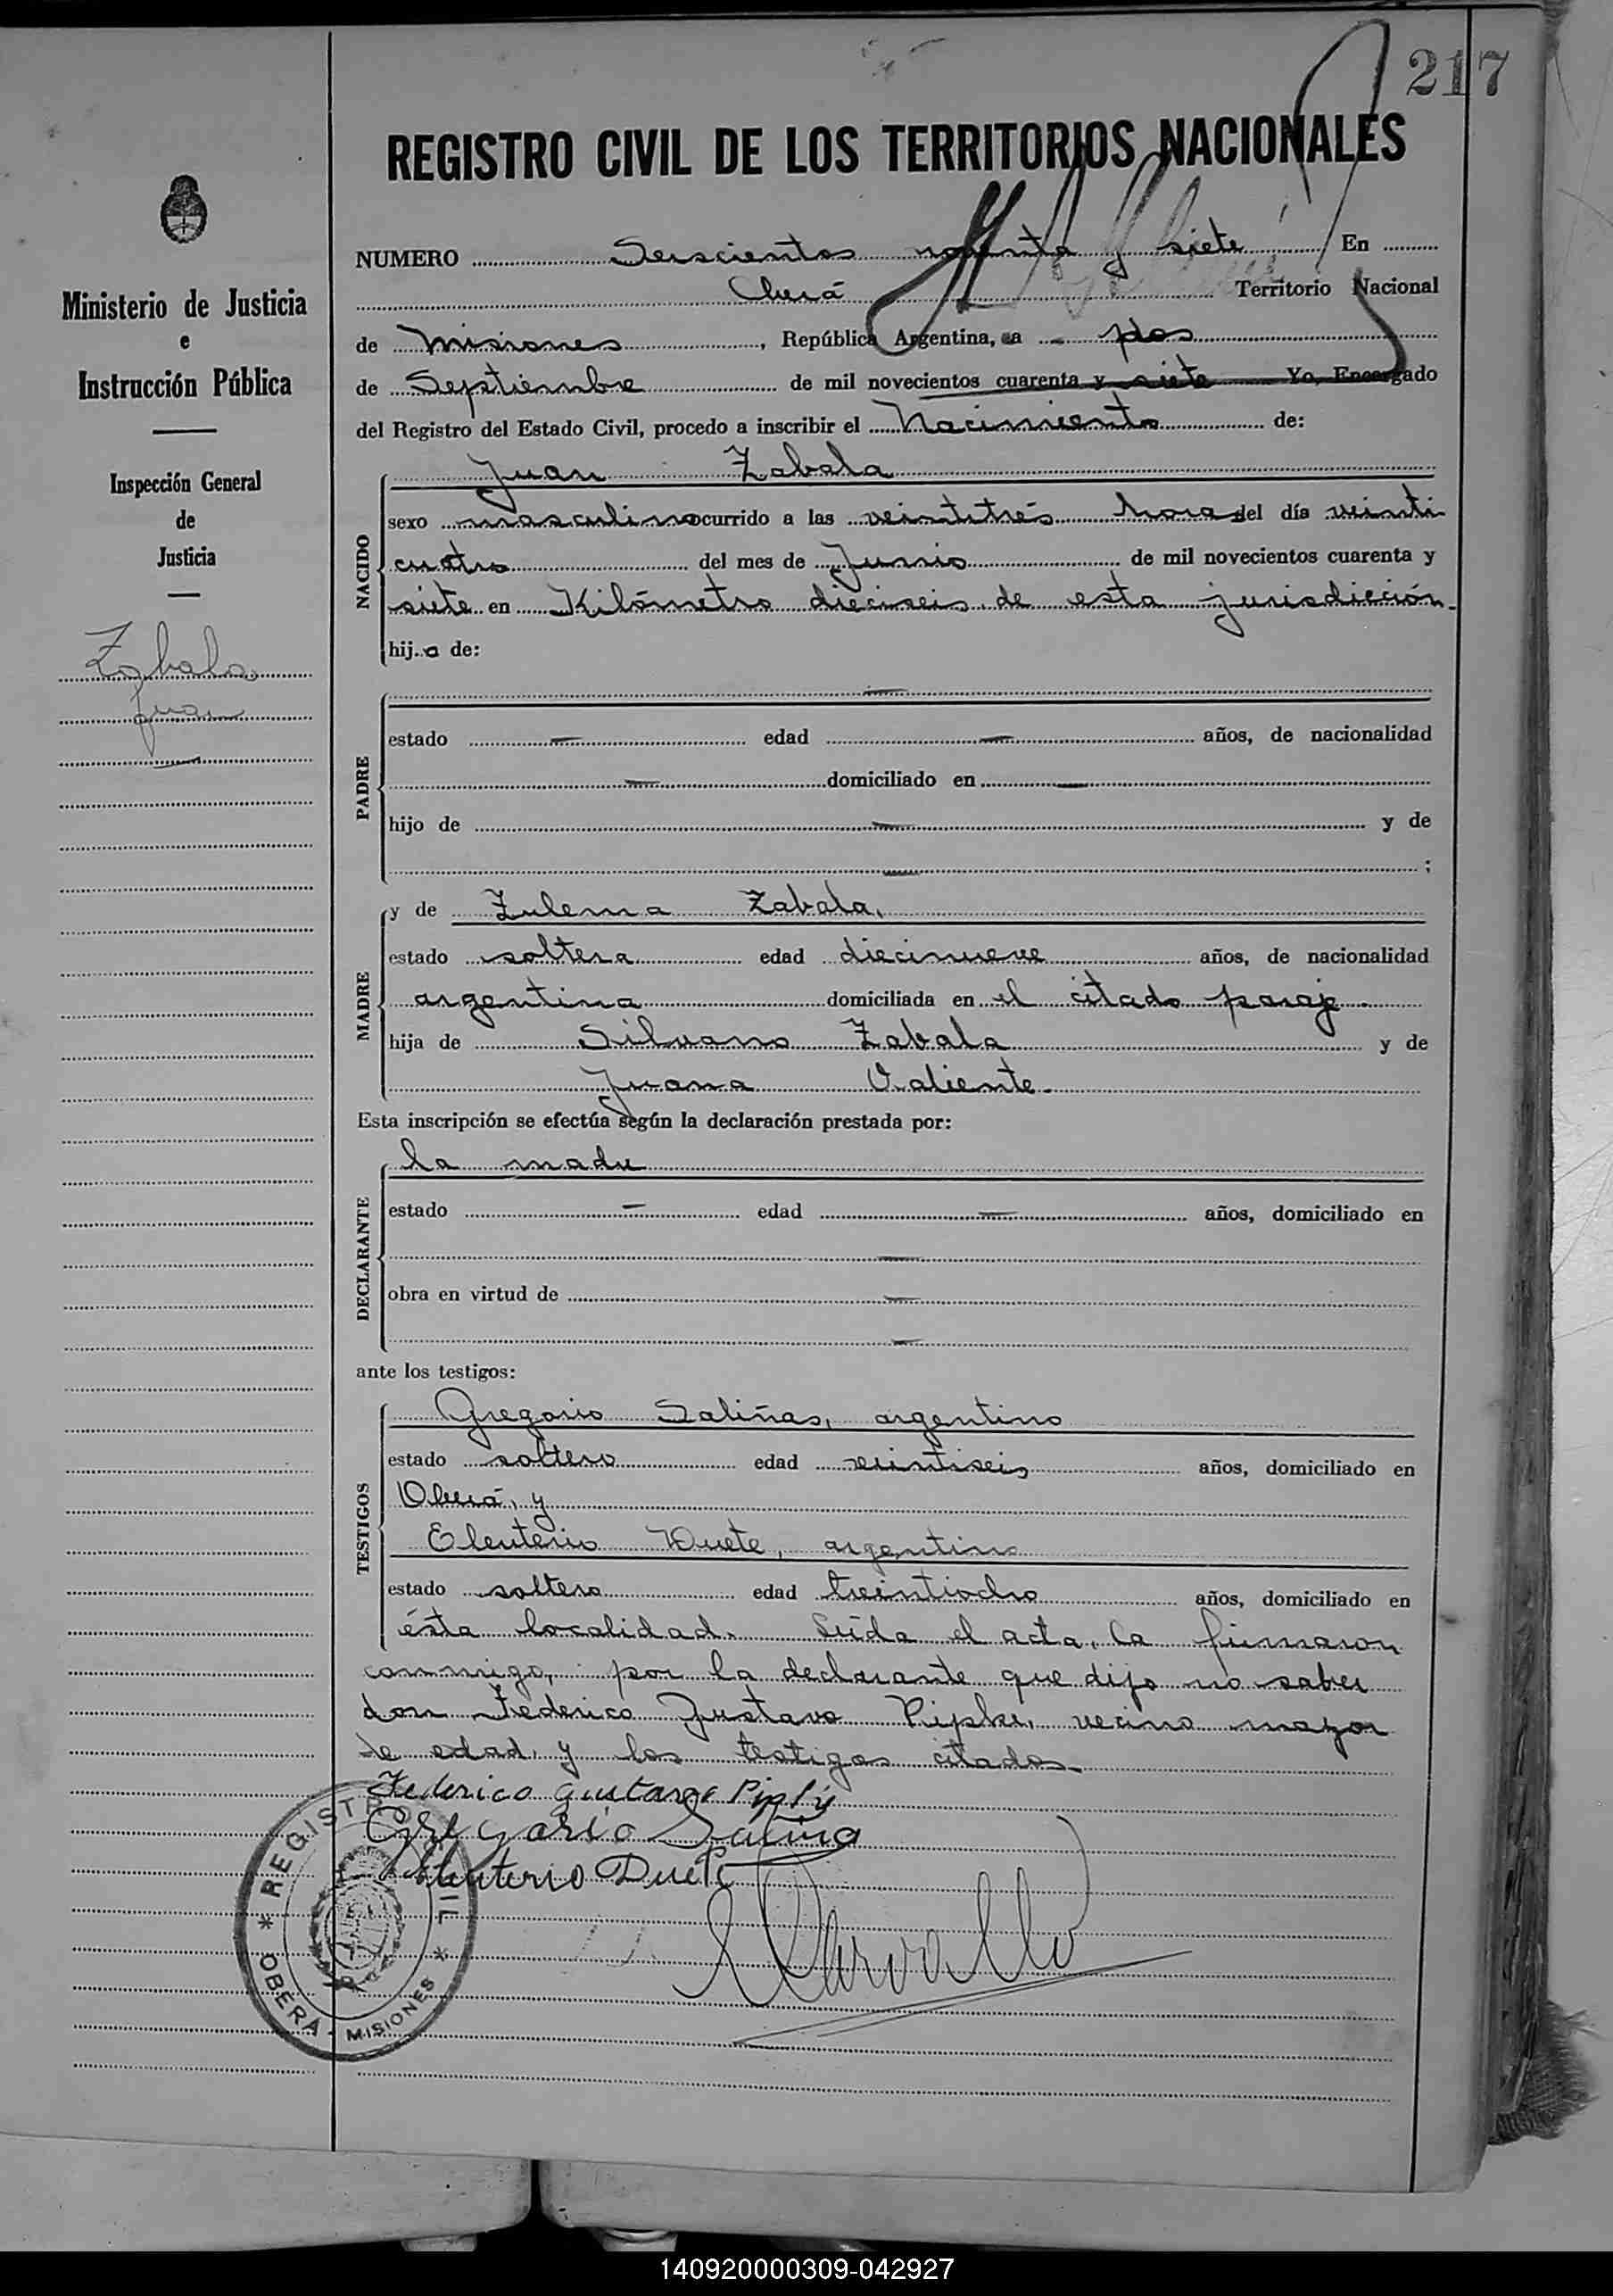 217
REGISTRO CIVIL DE LOS TERRITORIOS NACIONALES
Ministerio de Justicia
e
Instrucción Pública
Inspección General
de
Justicia
Zabala
Juan
NUMERO Seiscientos noventa y siete En
Oberá Territorio Nacional
de Misiones, República Argentina, a dos
de Septiembre de mil novecientos cuarenta y siete Yo, Encargado
del Registro del Estado Civil, procedo a inscribir el Nacimiento de:
NACIDO
Juan Zabala
sexo masculino ocurrido a las veintitrés horas del día veinti
cuatro del mes de Junio de mil novecientos cuarenta y
siete en Kilómetro dieciseis de esta jurisdicción.
hijo de:
PADRE
estado — edad — años, de nacionalidad
— domiciliado en —
hijo de — y de
— ;
MADRE
y de Zulema Zabala,
estado soltera edad diecinueve años, de nacionalidad
argentina domiciliada en el citado paraje.
hija de Silvano Zabala y de
Juana Valiente.
Esta inscripción se efectúa según la declaración prestada por:
DECLARANTE
la madre
estado — edad — años, domiciliado en
—
obra en virtud de —
—
ante los testigos:
TESTIGOS
Gregorio Saliñas, argentino
estado soltero edad veintiseis años, domiciliado en
Oberá, y
Eleuterio Duete, argentino
estado soltero edad treintiocho años, domiciliado en
ésta localidad. Leída el acta, la firmaron
conmigo, por la declarante que dijo no saber
don Federico Gustavo Pipke, vecino mayor
de edad, y los testigos citados.
Federico Gustavo
Gregorio Salina
Eleuterio Duete
REGISTRO CIVIL
* OBERÁ - MISIONES *
140920000309-042927